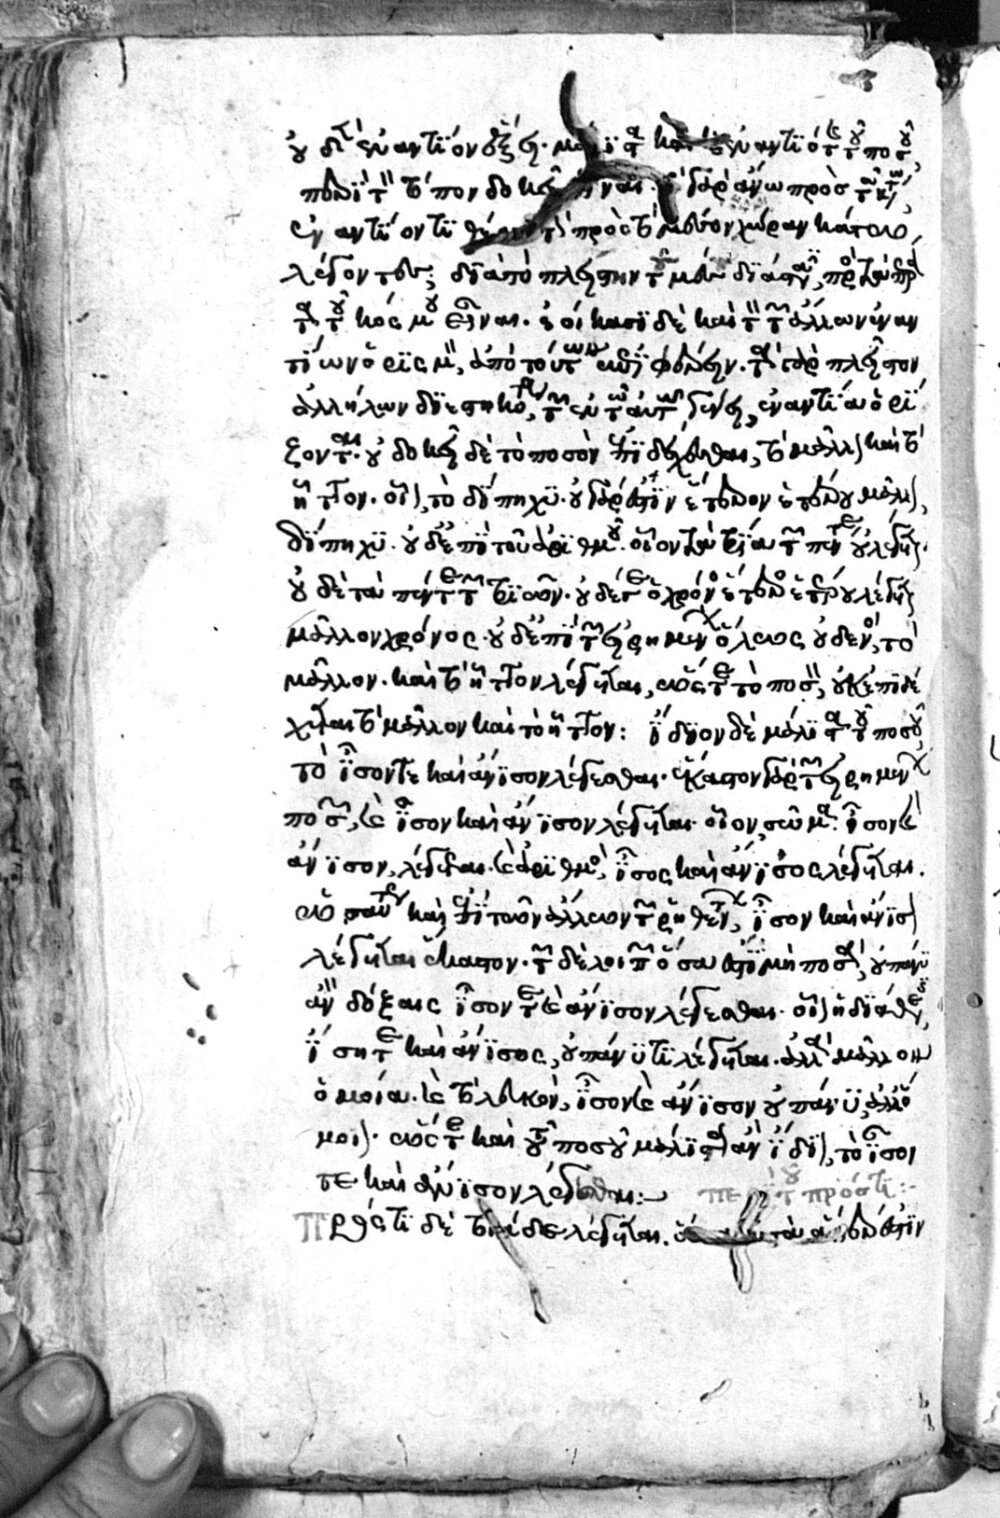 οὐδὲ ἐναντίον δόξει. μάλιστα καὶ ἡ ἐναντιότης τοῦ ποσοῦ,
περὶ τὸν τόπον δοκεῖ εἶναι. τὸ γὰρ ἄνω πρὸς τὸ κάτω,
ἐναντίον τιθέασι τὴν πρὸς τὸ μέσον χώραν κάτω
λέγοντες· διὰ τὸ πλείστην τοῦ μέσου διάστασιν, πρὸς τὰ πέρατα
τὰ τοῦ κόσμου εἶναι. ἐοίκασι δὲ καὶ τὸν τῶν ἄλλων ἐναν
τίων ὁρισμὸν, ἀπὸ τούτων ἐπιφέρειν. τὰ γὰρ πλεῖστον
ἀλλήλων διεστηκότα, τῶν ἐν τῷ αὐτῷ γένει, ἐναντία ὁρί
ζονται. οὐ δοκεῖ δὲ τὸ ποσὸν ἐπιδέχεσθαι, τὸ μᾶλλον καὶ τὸ
ἧττον. οἷον, τὸ δίπηχυ. οὐ γάρ ἐστιν ἕτερον ἑτέρου μᾶλλον,
δίπηχυ. οὐδὲ ἐπὶ τοῦ ἀριθμοῦ. οἷον τὰ τρία τῶν πέντε οὐ λέγεται.
οὐδὲ τὰ πέντε τῶν τριῶν. οὐδέ γε ὁ χρόνος ἕτερος ἑτέρου λέγεται
μᾶλλον χρόνος. οὐδὲ ἐπὶ τῶν εἰρημένων ὅλως οὐδενὸς, τὸ
μᾶλλον. καὶ τὸ ἧττον λέγεται, ὥστε τὸ ποσὸν, οὐκ ἐπιδέ
χεται τὸ μᾶλλον καὶ τὸ ἧττον: ἴδιον δὲ μάλιστα τοῦ ποσοῦ,
τὸ ἴσον τε καὶ ἄνισον λέγεσθαι. ἕκαστον γὰρ τῶν εἰρημένων
ποσῶν, καὶ ἴσον καὶ ἄνισον λέγεται. οἷον, σῶμα. ἴσον καὶ
ἄνισον, λέγεται. καὶ ἀριθμὸς, ἴσος καὶ ἄνισος λέγεται.
ὡσαύτως καὶ ἐπὶ τῶν ἄλλων τῶν ῥηθέντων, ἴσον καὶ ἄνισον
λέγεται ἕκαστον. τῶν δὲ λοιπῶν ὅσα ἐστὶ μὴ ποσὰ, οὐ πάνυ
ἂν δόξαις ἴσον τε καὶ ἄνισον λέγεσθαι. οἷον ἡ διάθεσις,
ἴση τε καὶ ἄνισος, οὐ πάνυ τι λέγεται. ἀλλὰ μᾶλλον
ὁμοία. καὶ τὸ λευκὸν, ἴσον καὶ ἄνισον οὐ πάνυ, ἀλλ' ὅ
μοιον. ὥστε καὶ τοῦ ποσοῦ μάλιστα ἂν ἴδιον, τὸ ἴσον
τε καὶ ἄνισον λέγεσθαι:
περὶ τοῦ πρός τι:
Πρός τι δὲ τὰ τοιάδε λέγεται. ὅσα αὐτὰ ἅπερ ἐστὶν